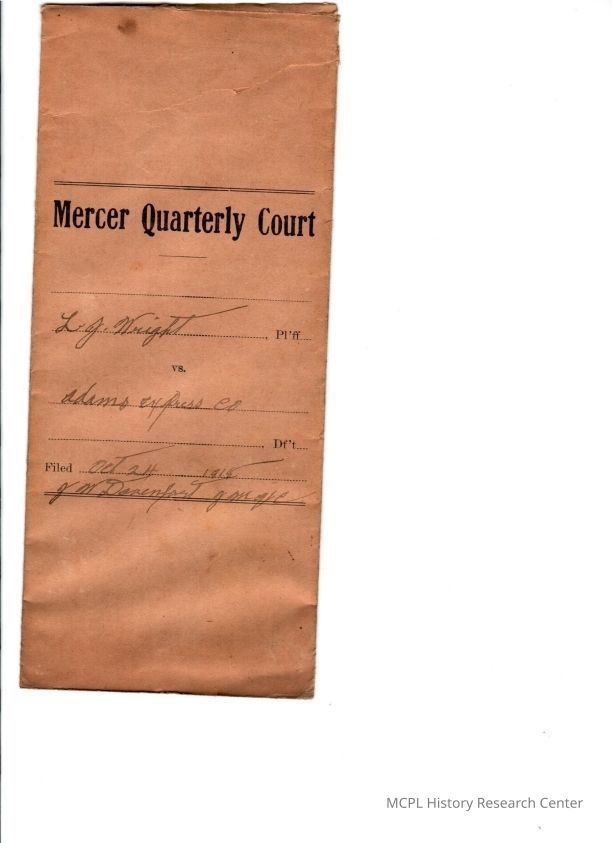 Mercer Quarterly Court
L. J. Wright, Pl'ff
vs.
Adams Express Co
Df't
Filed Oct 24 1915
J W Davenport
MCPL History Research Center